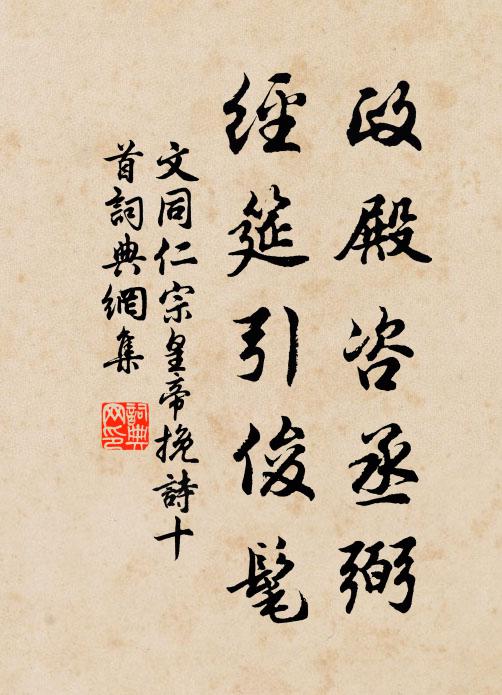 政殿咨丞弼
經筵引俊髦
文同仁宗皇帝挽詩十
首詞典網集
詞典
网印